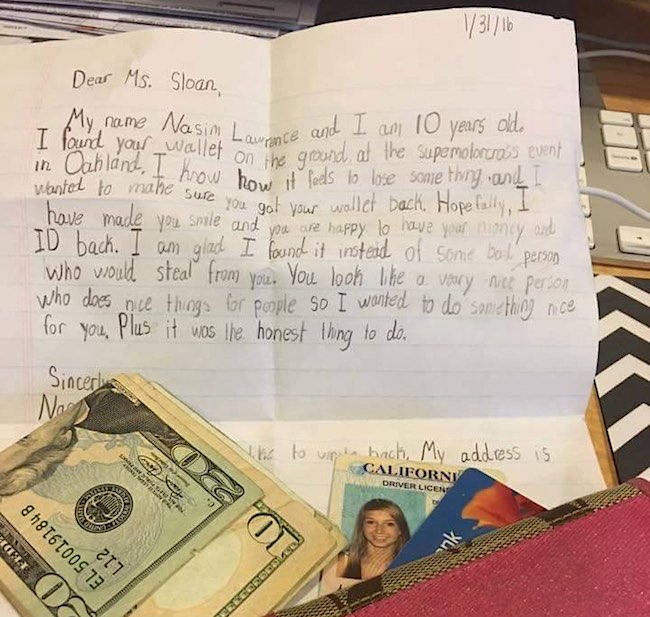 1/31/16
Dear Ms. Sloan,
My name Nasim Lawrence and I am 10 years old.
I found your wallet on the ground at the supermotorcross event
in Oakland. I know how it feels to lose something and I
wanted to make sure you got your wallet back. Hopefully, I
have made you smile and you are happy to have your money and
ID back. I am glad I found it instead of some bad person
who would steal from you. You look like a veary nice person
who does nice things for people so I wanted to do something nice
for you. Plus it was the honest thing to do.
Sincerly
to write back, My address is
CALIFORNI
DRIVER LICEN
20
EL50019184B
L12
20
10
nk